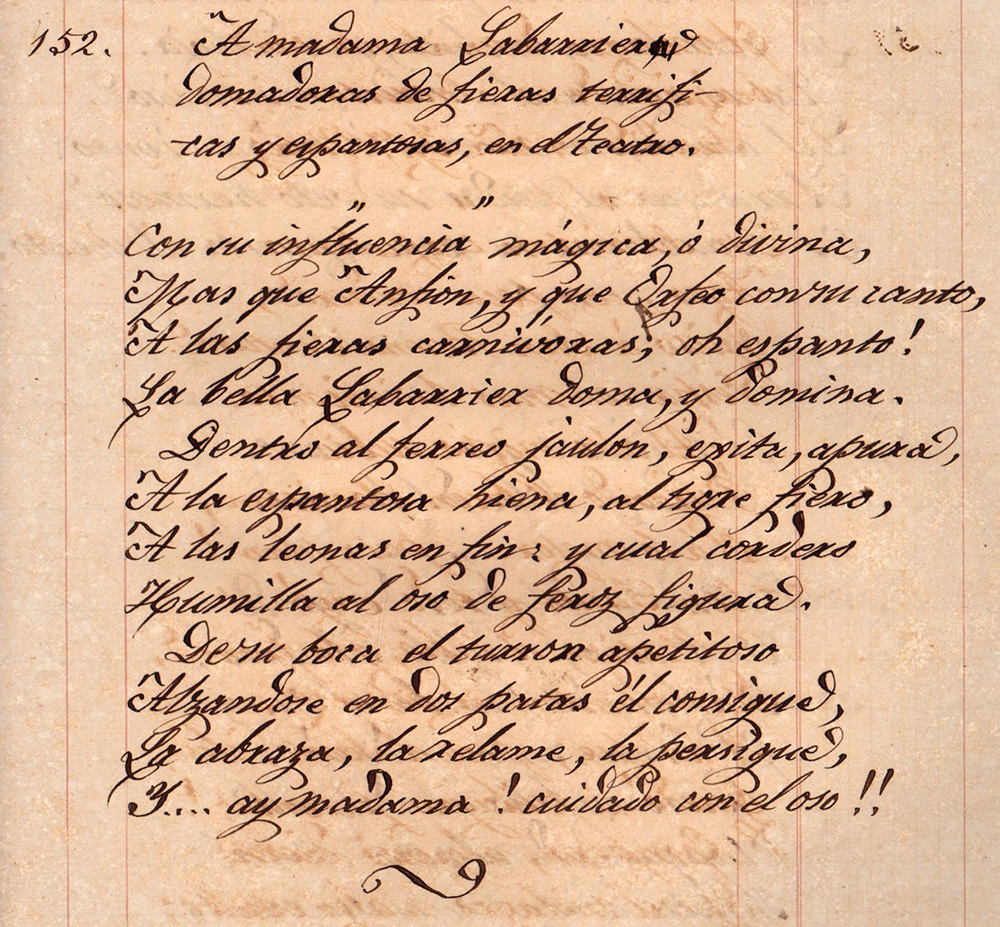 152. A madama Labarrier
domadoras de fieras terrifi-
cas y espantosas, en el Teatro.
" "
Con su influencia mágica, ó divina,
Mas que Anfion, y que Orfeo con su canto,
A las fieras carnívoras, oh espanto!
La bella Labarrier doma, y domina.
Dentro al ferreo jaulon, evita, apura,
A la espantosa hiena, al tigre fiero,
A las leonas en fin: y cual cordero
Humilla al oso de feroz figura.
De su boca el turron apetitoso
Alzandose en dos patas él consigue,
La abraza, la relame, la persigue,
Y.... ay madama! cuidado con el oso!!